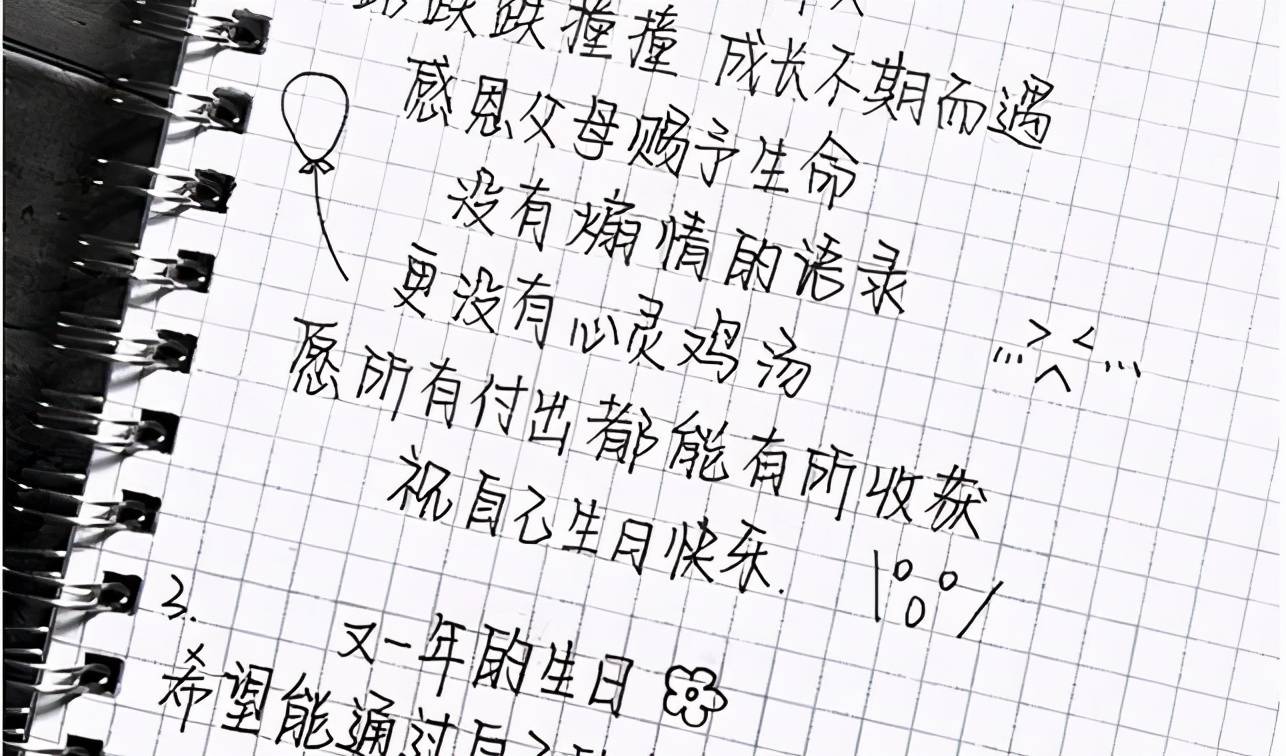 路跌跌撞撞 成长不期而遇
感恩父母赐予生命
没有煽情的语录
更没有心灵鸡汤
愿所有付出都能有所收获
祝自己生日快乐.
3.
又一年的生日
希望能通过自己